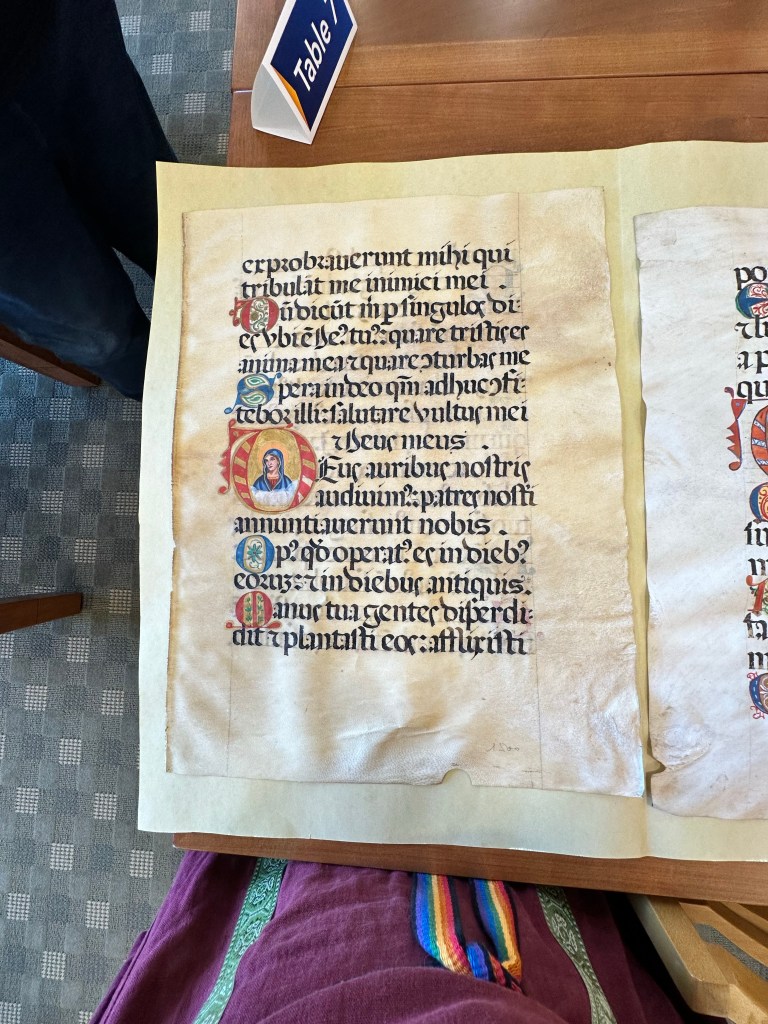 Table 7
exprobraverunt mihi qui
tribulāt me inimici mei .
Dū dicūt m̄ p singulos di-
es vbi ē De᾿ tu᾿: quare tristis es
anima mea ⁊ quare ↄturbas me
Spera in deo qm̄ adhuc ↄfi-
tebor illi: salutare vultus mei
⁊ Deus meus .
Deus auribus nostris
audivim᾿: patres nost̄i
annuntiaverunt nobis .
Op᾿ qd̄ operat᾿ es in dieb᾿
eoruz: ⁊ in diebus antiquis.
Manus tua gentes disperdi-
dit ⁊ plantasti eos: afflixisti
po
a p
qu